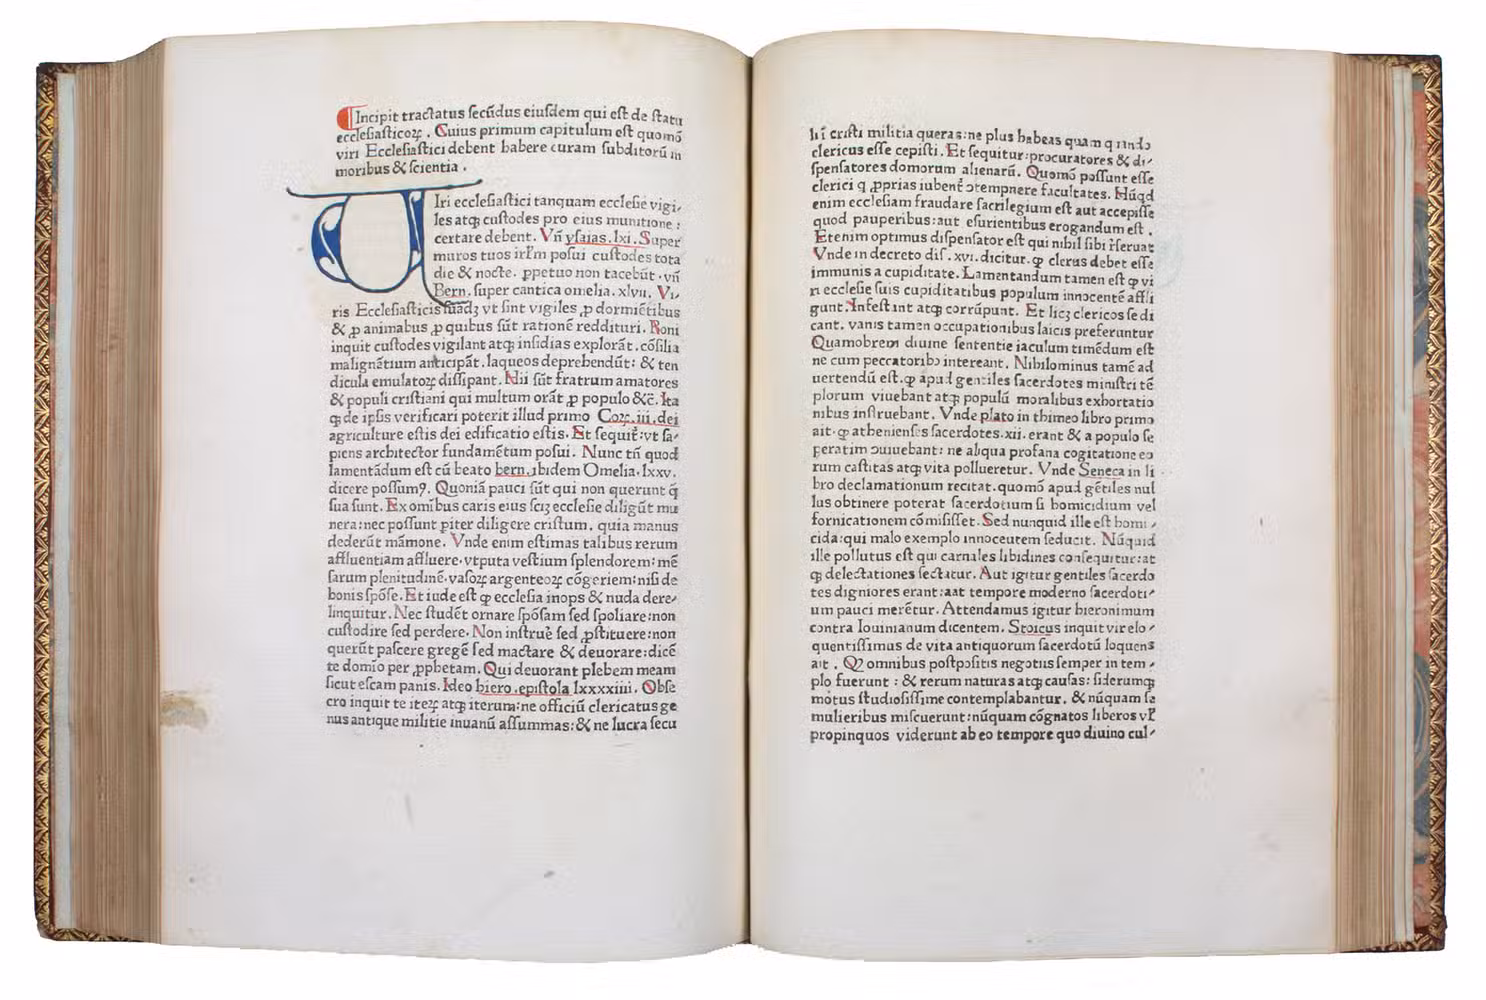 Incipit tractatus secūdus eiusdem qui est de statu
ecclesiasticoꝝ . Cuius primum capitulum est quomō
viri Ecclesiastici debent habere curam subditorū in
moribus & scientia .
UIri ecclesiastici tanquam ecclesie vigi⸗
les atqꝫ custodes pro eius munitione :
certare debent. Vn̄ ysaias .lxi. Super
muros tuos irl̄m posui custodes tota
die & nocte. ꝑpetuo non tacebūt . vn̄
Bern. super cantica omelia. xlvii. Vi⸗
ris Ecclesiasticis suadꝫ vt sint vigiles ꝓ dormiētibus
& ꝓ animabus ꝓ quibus sūt rationē reddituri. Boni
inquit custodes vigilant atqꝫ insidias explorāt. cōsilia
malignātium anticipāt. laqueos deprehendūt: & ten
dicula emulatoꝝ dissipant. Hii sūt fratrum amatores
& populi cristiani qui multum orāt ꝓ populo &c̄. Ita
ꝙ de ipsis verificari poterit illud primo Coꝝ. iii. dei
agriculture estis dei edificatio estis. Et sequit᷑: vt sa⸗
piens architector fundamētum posui. Nunc tn̄ quod
lamentādum est cū beato bern. ibidem Omelia. lxxv.
dicere possumꝰ. Quoniā pauci sūt qui non querunt q̄
sua sunt. Ex omībus caris eius scꝫ ecclesie diligūt mu
nera: nec possunt ꝑiter diligere cristum. quia manus
dederūt māmone. Vnde enim estimas talibus rerum
affluentiam affluere. vtputa vestium splendorem: mē
sarum plenitudinē. vasoꝝ argenteoꝝ cōgeriem: nisi de
bonis spōse. Et iude est ꝙ ecclesia inops & nuda dere⸗
linquitur. Nec studēt ornare spōsam sed spoliare: non
custodire sed perdere. Non instruere sed ꝓstituere: non
querūt pascere gregē sed mactare & deuorare: dicē
te domīo per ꝓphetam. Qui deuorant plebem meam
sicut escam panis. Ideo hiero. epistola lxxxxiiii. Obse
cro inquit te iteꝝ atqꝫ iterum: ne officiū clericatus ge
nus antique militie inuanū assummas: & ne lucra secu
li ī cristi militia queras: ne plus habeas quam quando
clericus esse cepisti. Et sequitur: procuratores & di⸗
spensatores domorum alienarū. Quomō possunt esse
clerici q ꝓprias iubent᷑ ↄtempnere facultates. Nūqd
enim ecclesiam fraudare sacrilegium est aut accepisse
quod pauperibus: aut esurientibus erogandum est .
Etenim optimus dispensator est qui nihil sibi r̄seruat
Vnde in decreto dis. xvi. dicitur. ꝙ clerus debet esse
immunis a cupiditate. Lamentandum tamen est ꝙ vi
ri ecclesie suis cupiditatibus populum innocentē affli
gunt. Infestant atqꝫ corrūpunt. Et licꝫ clericos se di
cant. vanis tamen occupationibus laicis preferuntur
Quamobrem diuine sententie iaculum timēdum est
ne cum peccatoribꝰ intereant. Nihilominus tamē ad
uertendū est. ꝙ apud gentiles sacerdotes ministri tē
plorum viuebant atqꝫ populū moralibus exhortatio
nibus instruebant. Vnde plato in thimeo libro primo
ait. ꝙ athenienses sacerdotes .xii. erant & a populo se
peratim viuebant: ne aliqua profana cogitatione eo
rum castitas atqꝫ vita pollueretur. Vnde Seneca in li
bro declamationum recitat. quomō apud gētiles nul
lus obtinere poterat sacerdotium si homicidium vel
fornicationem cōmisisset. Sed nunquid ille est homi⸗
cida: qui malo exemplo innocentem seducit. Nūquid
ille pollutus est qui carnales libidines consequitur: at
qꝫ delectationes sectatur. Aut igitur gentiles sacerdo
tes digniores erant: aut tempore moderno sacerdoti⸗
um pauci merētur. Attendamus igitur hieronimum
contra Iouinianum dicentem. Stoicus inquit vir elo⸗
quentissimus de vita antiquorum sacerdotū loquens
ait . Qꝫ omnibus postpositis negotiis semper in tem⸗
plo fuerunt : & rerum naturas atqꝫ causas: siderumqꝫ
mōtus studiosissime contemplabantur. & nūquam se
mulieribus miscuerunt: nūquam cōgnatos liberos vel
propinquos viderunt ab eo tempore quo diuino cul⸗